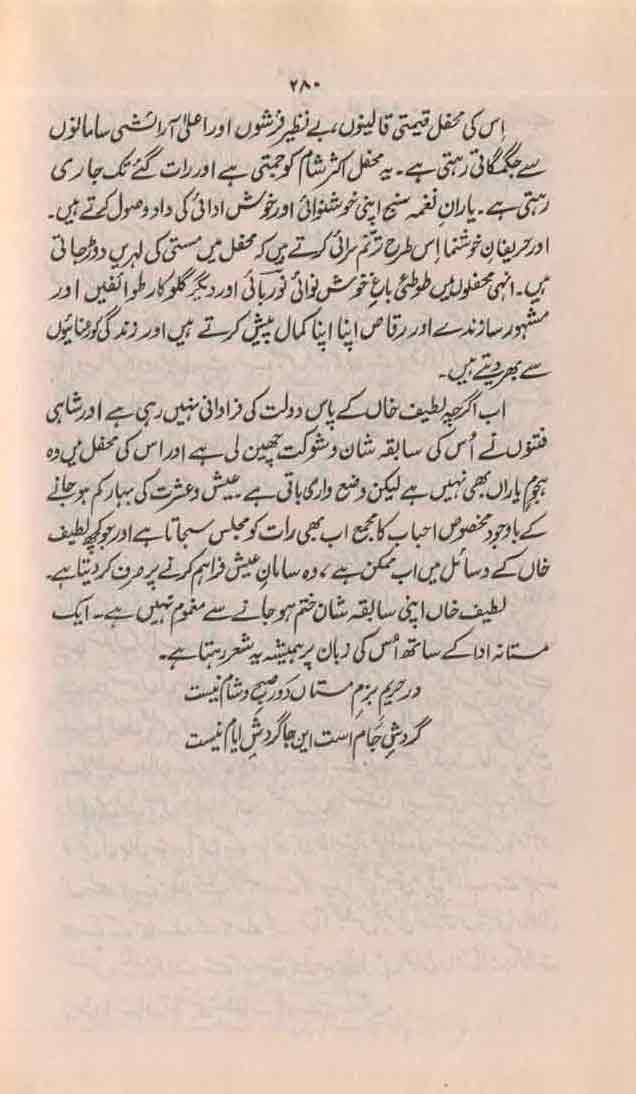 ۲۸۰
اِس کی محفل قیمتی قالینوں، بے نظیر فرشوں اور اعلیٰ آرائشی سامانوں
سے جگمگاتی رہتی ہے۔ یہ محفل اکثر شام کو جمتی ہے اور رات گئے تک جاری
رہتی ہے۔ یارانِ نغمہ سنج اپنی خوشنوائی اور خوش ادائی کی داد وصول کرتے ہیں۔
اور حریفانِ خوشنما اِس طرح ترنّم سرائی کرتے ہیں کہ محفل میں مستی کی لہریں دوڑ جاتی
ہیں۔ انہی محفلوں میں طوطئ باغِ خوش نوائی نور بائی اور دیگر گلوکار طوائفیں اور
مشہور سازندے اور رقاص اپنا اپنا کمال پیش کرتے ہیں اور زندگی کو رعنائیوں
سے بھر دیتے ہیں۔
اب اگرچہ لطیف خاں کے پاس دولت کی فراوانی نہیں رہی ہے اور شاہی
فتنوں نے اُس کی سابقہ شان و شوکت چھین لی ہے اور اس کی محفل میں وہ
ہجومِ یاراں بھی نہیں ہے لیکن وضع واری باقی ہے۔ عیش و عشرت کی بہار کم ہو جانے
کے باوجود مخصوص احباب کا مجمع اب بھی رات کو مجلس سجاتا ہے اور جو کچھ لطیف
خاں کے وسائل میں اب ممکن ہے، وہ سامانِ عیش فراہم کرنے پر صرف کر دیتا ہے۔
لطیف خاں اپنی سابقہ شان ختم ہو جانے سے مغموم نہیں ہے۔ ایک
مستانہ ادا کے ساتھ اُس کی زبان پر ہمیشہ یہ شعر رہتا ہے۔
در حریمِ بزمِ مستاں دَورِ صبح و شام نیست
گردشِ جَام است ایں جا گردشِ ایام نیست